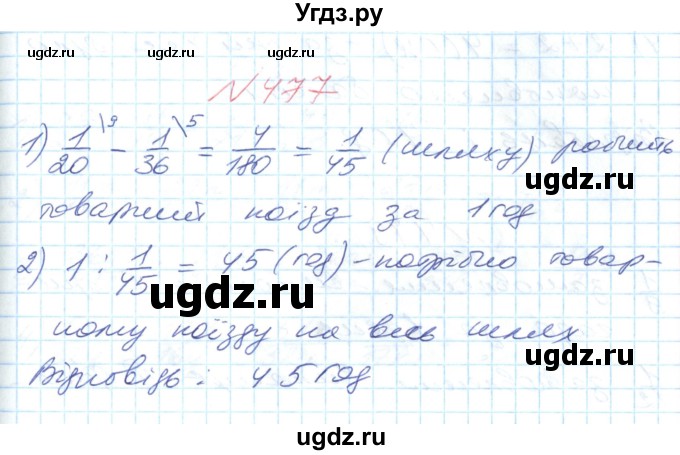 Угдз.ру
ugdz.ru ugdz.ru ugdz.ru
№ 477
1) 1/20 \9 - 1/36 \5 = 4/180 = 1/45 (шляху) робить
ugdz.ru ugdz.ru
товарний поїзд за 1 год
2) 1 : 1/45 = 45 (год) - потрібно товар-
ugdz.ru ugdz.ru
ному поїзду на весь шлях
Відповідь: 45 год
ugdz.ru ugdz.ru
ugdz.ru